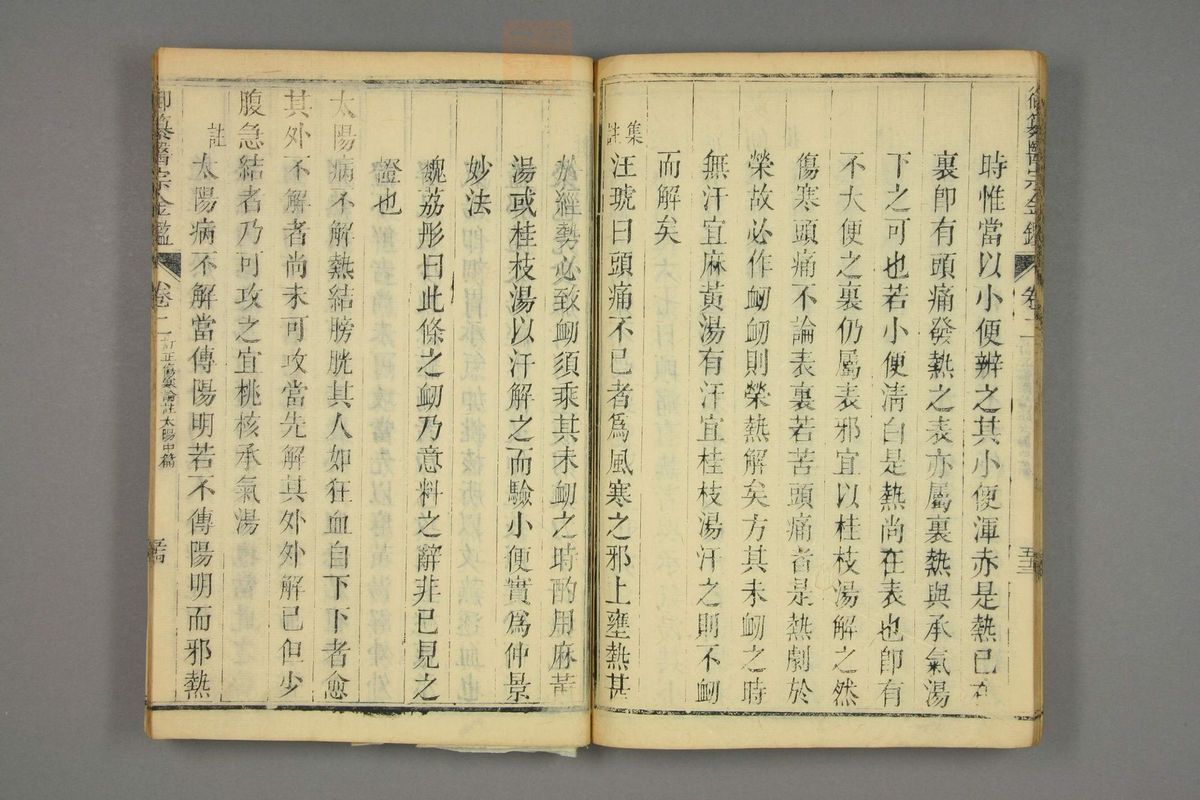 時惟當以小便辨之其小便渾赤是熱已在
裏即有頭痛發熱之表亦屬裏熱與承氣湯
下之可也若小便清白是熱尚在表也即有
不大便之裏仍屬表邪宜以桂枝湯解之然
傷寒頭痛不論表裏若苦頭痛者是熱劇於
榮故必作衂衂則榮熱解矣方其未衂之時
無汗宜麻黃湯有汗宜桂枝湯汗之則不衂
而解矣
集註汪琥曰頭痛不已者爲風寒之邪上壅熱甚
於經勢必致衂須乘其未衂之時酌用麻黃
湯或桂枝湯以汗解之而驗小便實爲仲景
妙法
魏荔彤曰此條之衂乃意料之辭非已見之
證也
太陽病不解熱結膀胱其人如狂血自下下者愈
其外不解者尚未可攻當先解其外外解已但少
腹急結者乃可攻之宜桃核承氣湯
註太陽病不解當傳陽明若不傳陽明而邪熱
御纂醫宗金鑑 卷二 訂正傷寒論註太陽中篇
御纂醫宗金鑑 卷二